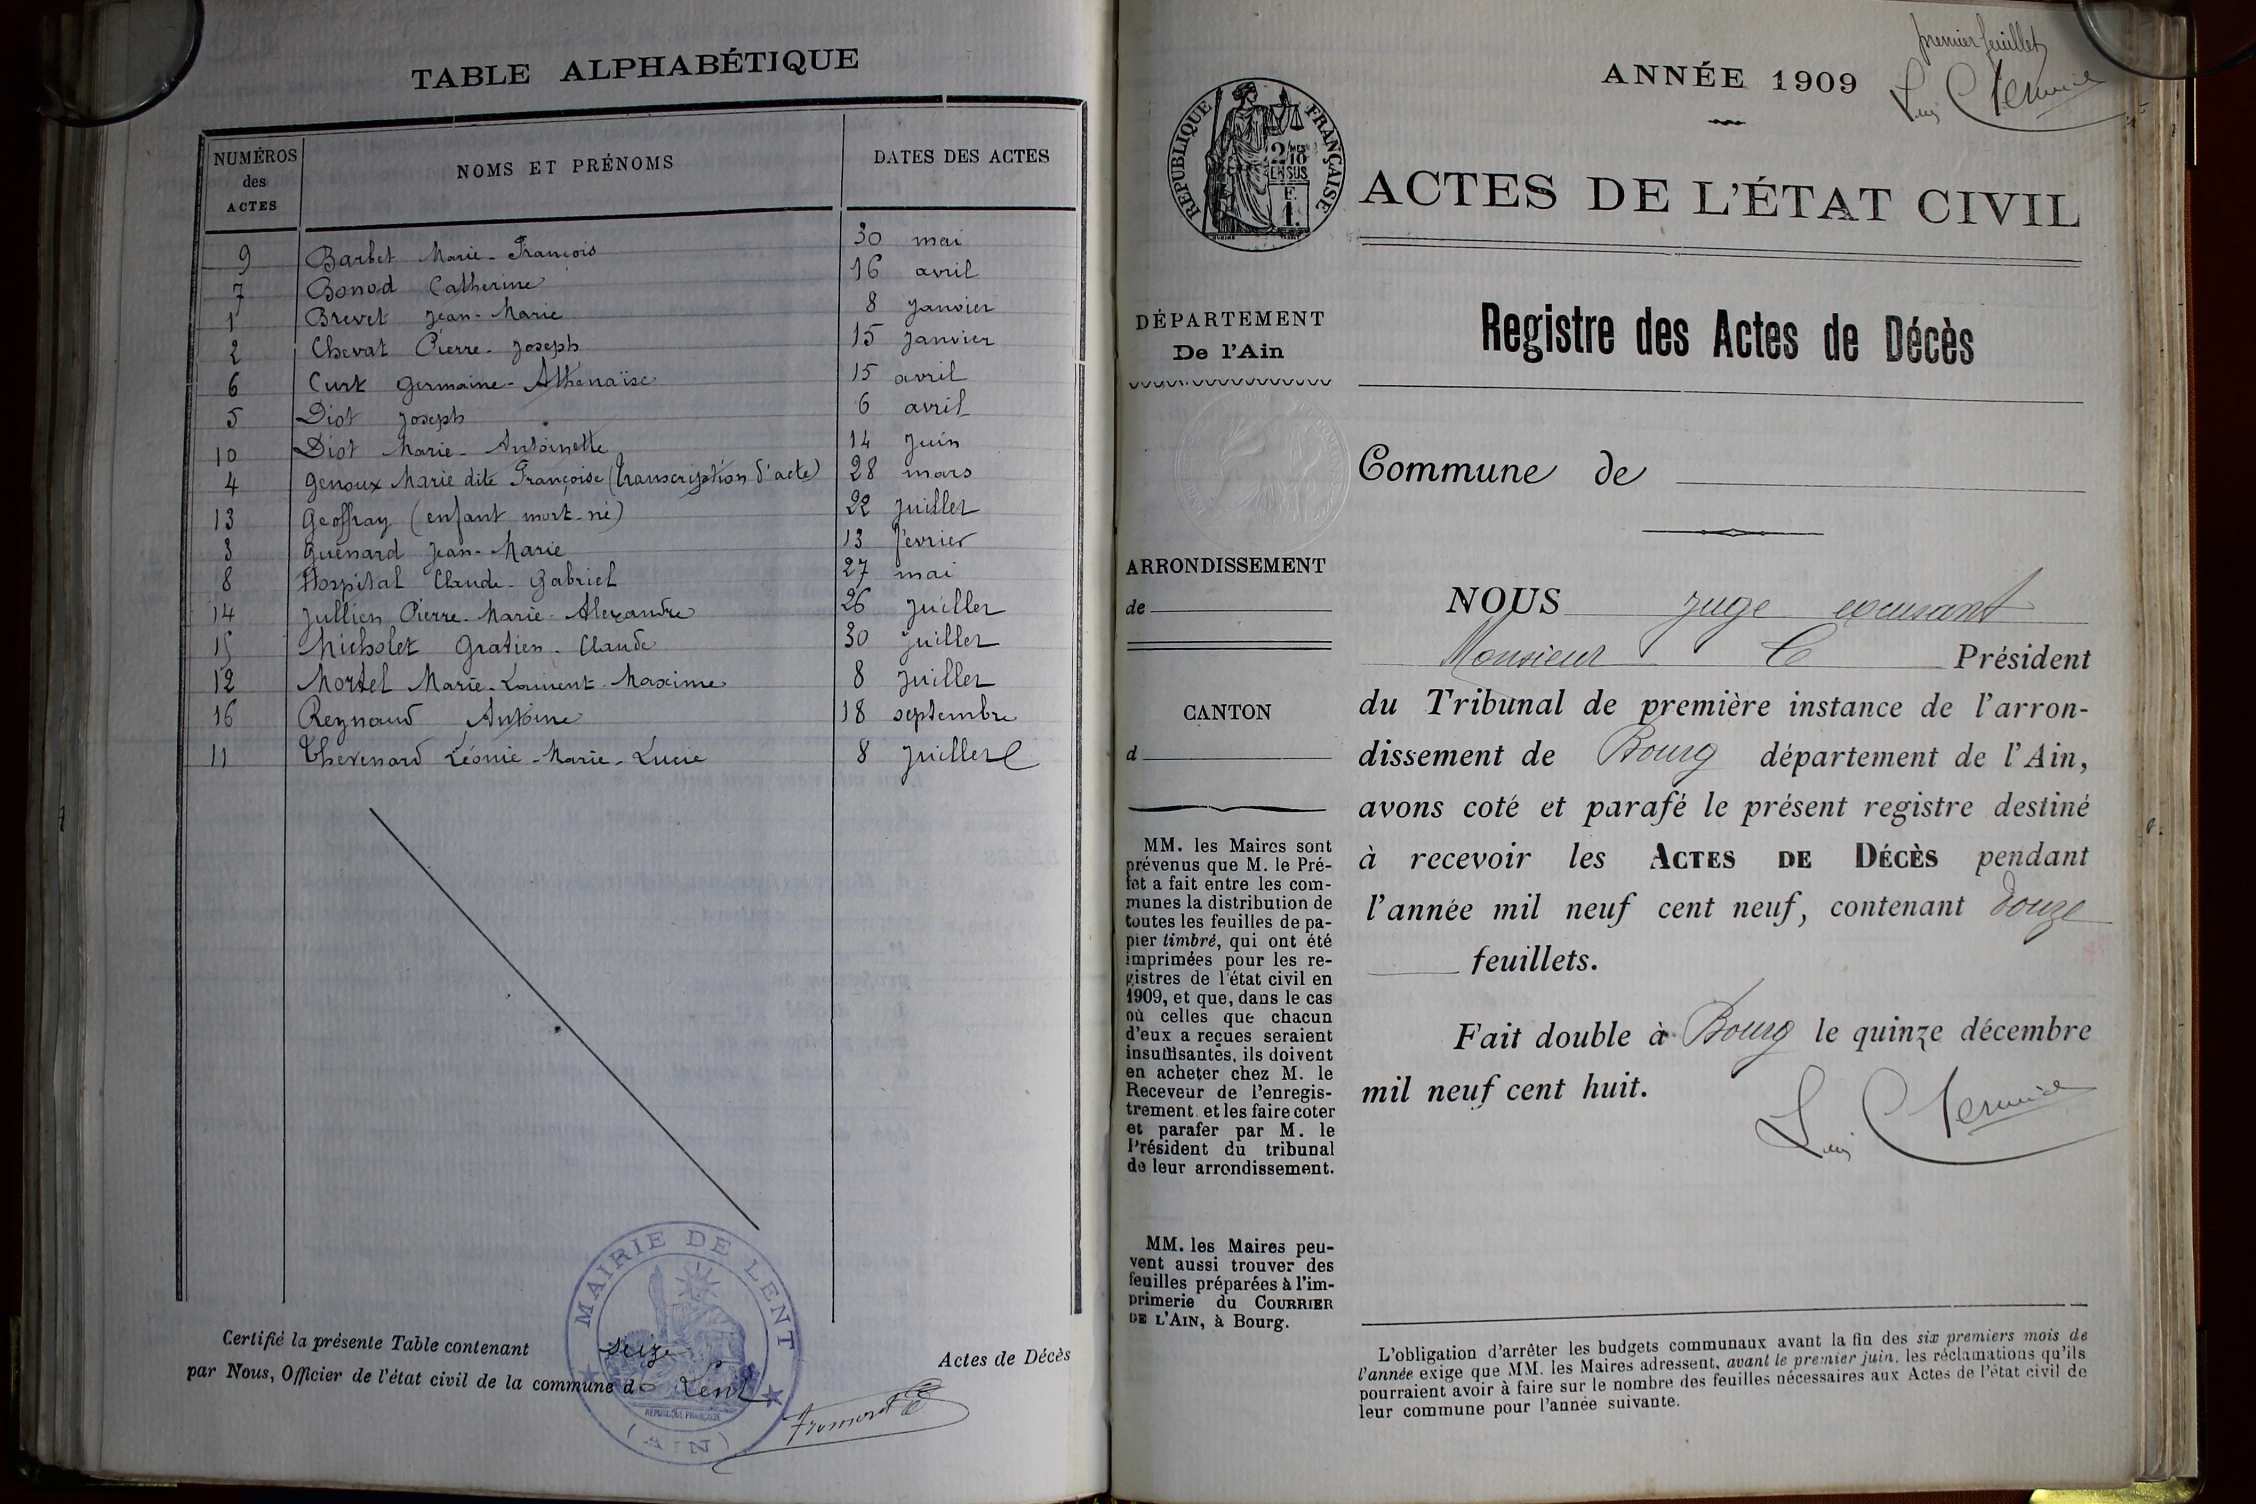 TABLE ALPHABÉTIQUE
NUMÉROS des ACTES NOMS ET PRÉNOMS DATES DES ACTES
9 Barbet Marie-François 30 mai
7 Bonod Catherine 16 avril
1 Brevet Jean-Marie 8 janvier
2 Chevat Pierre-Joseph 15 janvier
6 Curt Germaine-Athénaïse 15 avril
5 Diot Joseph 6 avril
10 Diot Marie-Antoinette 14 juin
4 Genoux Marie dite Françoise (transcription d'acte) 28 mars
13 Geoffray (enfant mort-né) 22 juillet
3 Guénard Jean-Marie 13 février
8 Hospital Claude-Gabriel 27 mai
14 Jullien Pierre-Marie-Alexandre 26 juillet
15 Micholet Gratien-Claude 30 juillet
12 Mortel Marie-Laurent-Maxime 8 juillet
16 Reynaud Antoine 18 septembre
11 Thevenard Léonie-Marie-Lucie 8 juillet
Certifié la présente Table contenant seize Actes de Décès
par Nous, Officier de l'état civil de la commune d Lent
MAIRIE DE LENT
RÉPUBLIQUE FRANÇAISE
(AIN)
premier feuillet
ANNÉE 1909
RÉPUBLIQUE FRANÇAISE
2/10 EN SUS
F. 1.
ACTES DE L'ÉTAT CIVIL
DÉPARTEMENT
De l'Ain
Registre des Actes de Décès
Commune de
ARRONDISSEMENT
de
CANTON
d
MM. les Maires sont
prévenus que M. le Pré-
fet a fait entre les com-
munes la distribution de
toutes les feuilles de pa-
pier timbré, qui ont été
imprimées pour les re-
gistres de l'état civil en
1909, et que, dans le cas
où celles que chacun
d'eux a reçues seraient
insuffisantes, ils doivent
en acheter chez M. le
Receveur de l'enregis-
trement et les faire coter
et parafer par M. le
Président du tribunal
de leur arrondissement.
MM. les Maires peu-
vent aussi trouver des
feuilles préparées à l'im-
primerie du COURRIER
DE L'AIN, à Bourg.
NOUS juge
Monsieur Président
du Tribunal de première instance de l'arron-
dissement de Bourg département de l'Ain,
avons coté et parafé le présent registre destiné
à recevoir les ACTES DE DÉCÈS pendant
l'année mil neuf cent neuf, contenant douze
feuillets.
Fait double à Bourg le quinze décembre
mil neuf cent huit.
L'obligation d'arrêter les budgets communaux avant la fin des six premiers mois de
l'année exige que MM. les Maires adressent, avant le premier juin, les réclamations qu'ils
pourraient avoir à faire sur le nombre des feuilles nécessaires aux Actes de l'état civil de
leur commune pour l'année suivante.